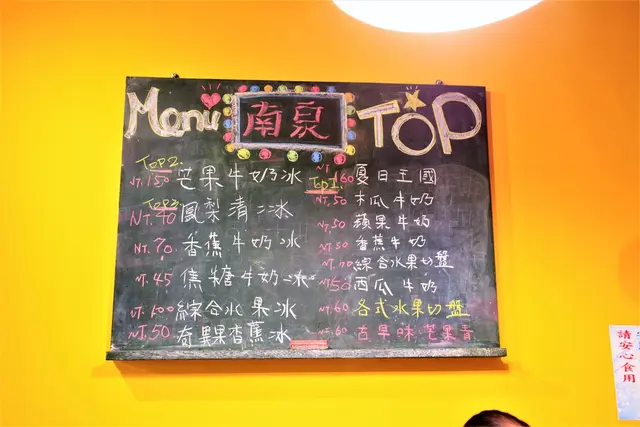 Menu 南泉 TOP
TOP2.
NT.150 芒果牛奶冰
TOP3.
NT.40 鳳梨清冰
NT.70 香蕉牛奶冰
NT.45 焦糖牛奶冰
NT.100 綜合水果冰
NT.50 奇異果香蕉冰
TOP1.
NT.160 夏日王國
NT.50 木瓜牛奶
NT.50 蘋果牛奶
NT.50 香蕉牛奶
綜合水果切盤
NT.50 西瓜牛奶
NT.60 各式水果切盤
NT.60 古早味芒果青
請安心食用